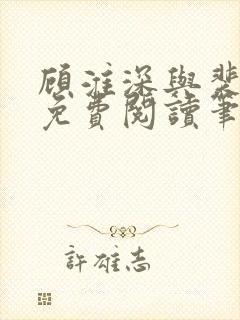 顾淮深與裴
免費閱讀筆
許雄志